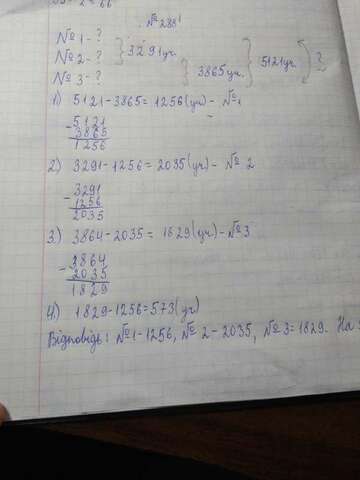 -2=66
№288
№1-?
№2-? 3291уч.
№3-? 3865уч. 5121уч. ?
1) 5121-3865=1256(уч)-№1
-5121
3865
1256
2) 3291-1256=2035(уч)-№2
-3291
1256
2035
3.) 3864-2035=1829(уч)-№3
-3864
2035
1829
4) 1829-1256=573(уч)
Відповідь: №1-1256, №2-2035, №3=1829. На